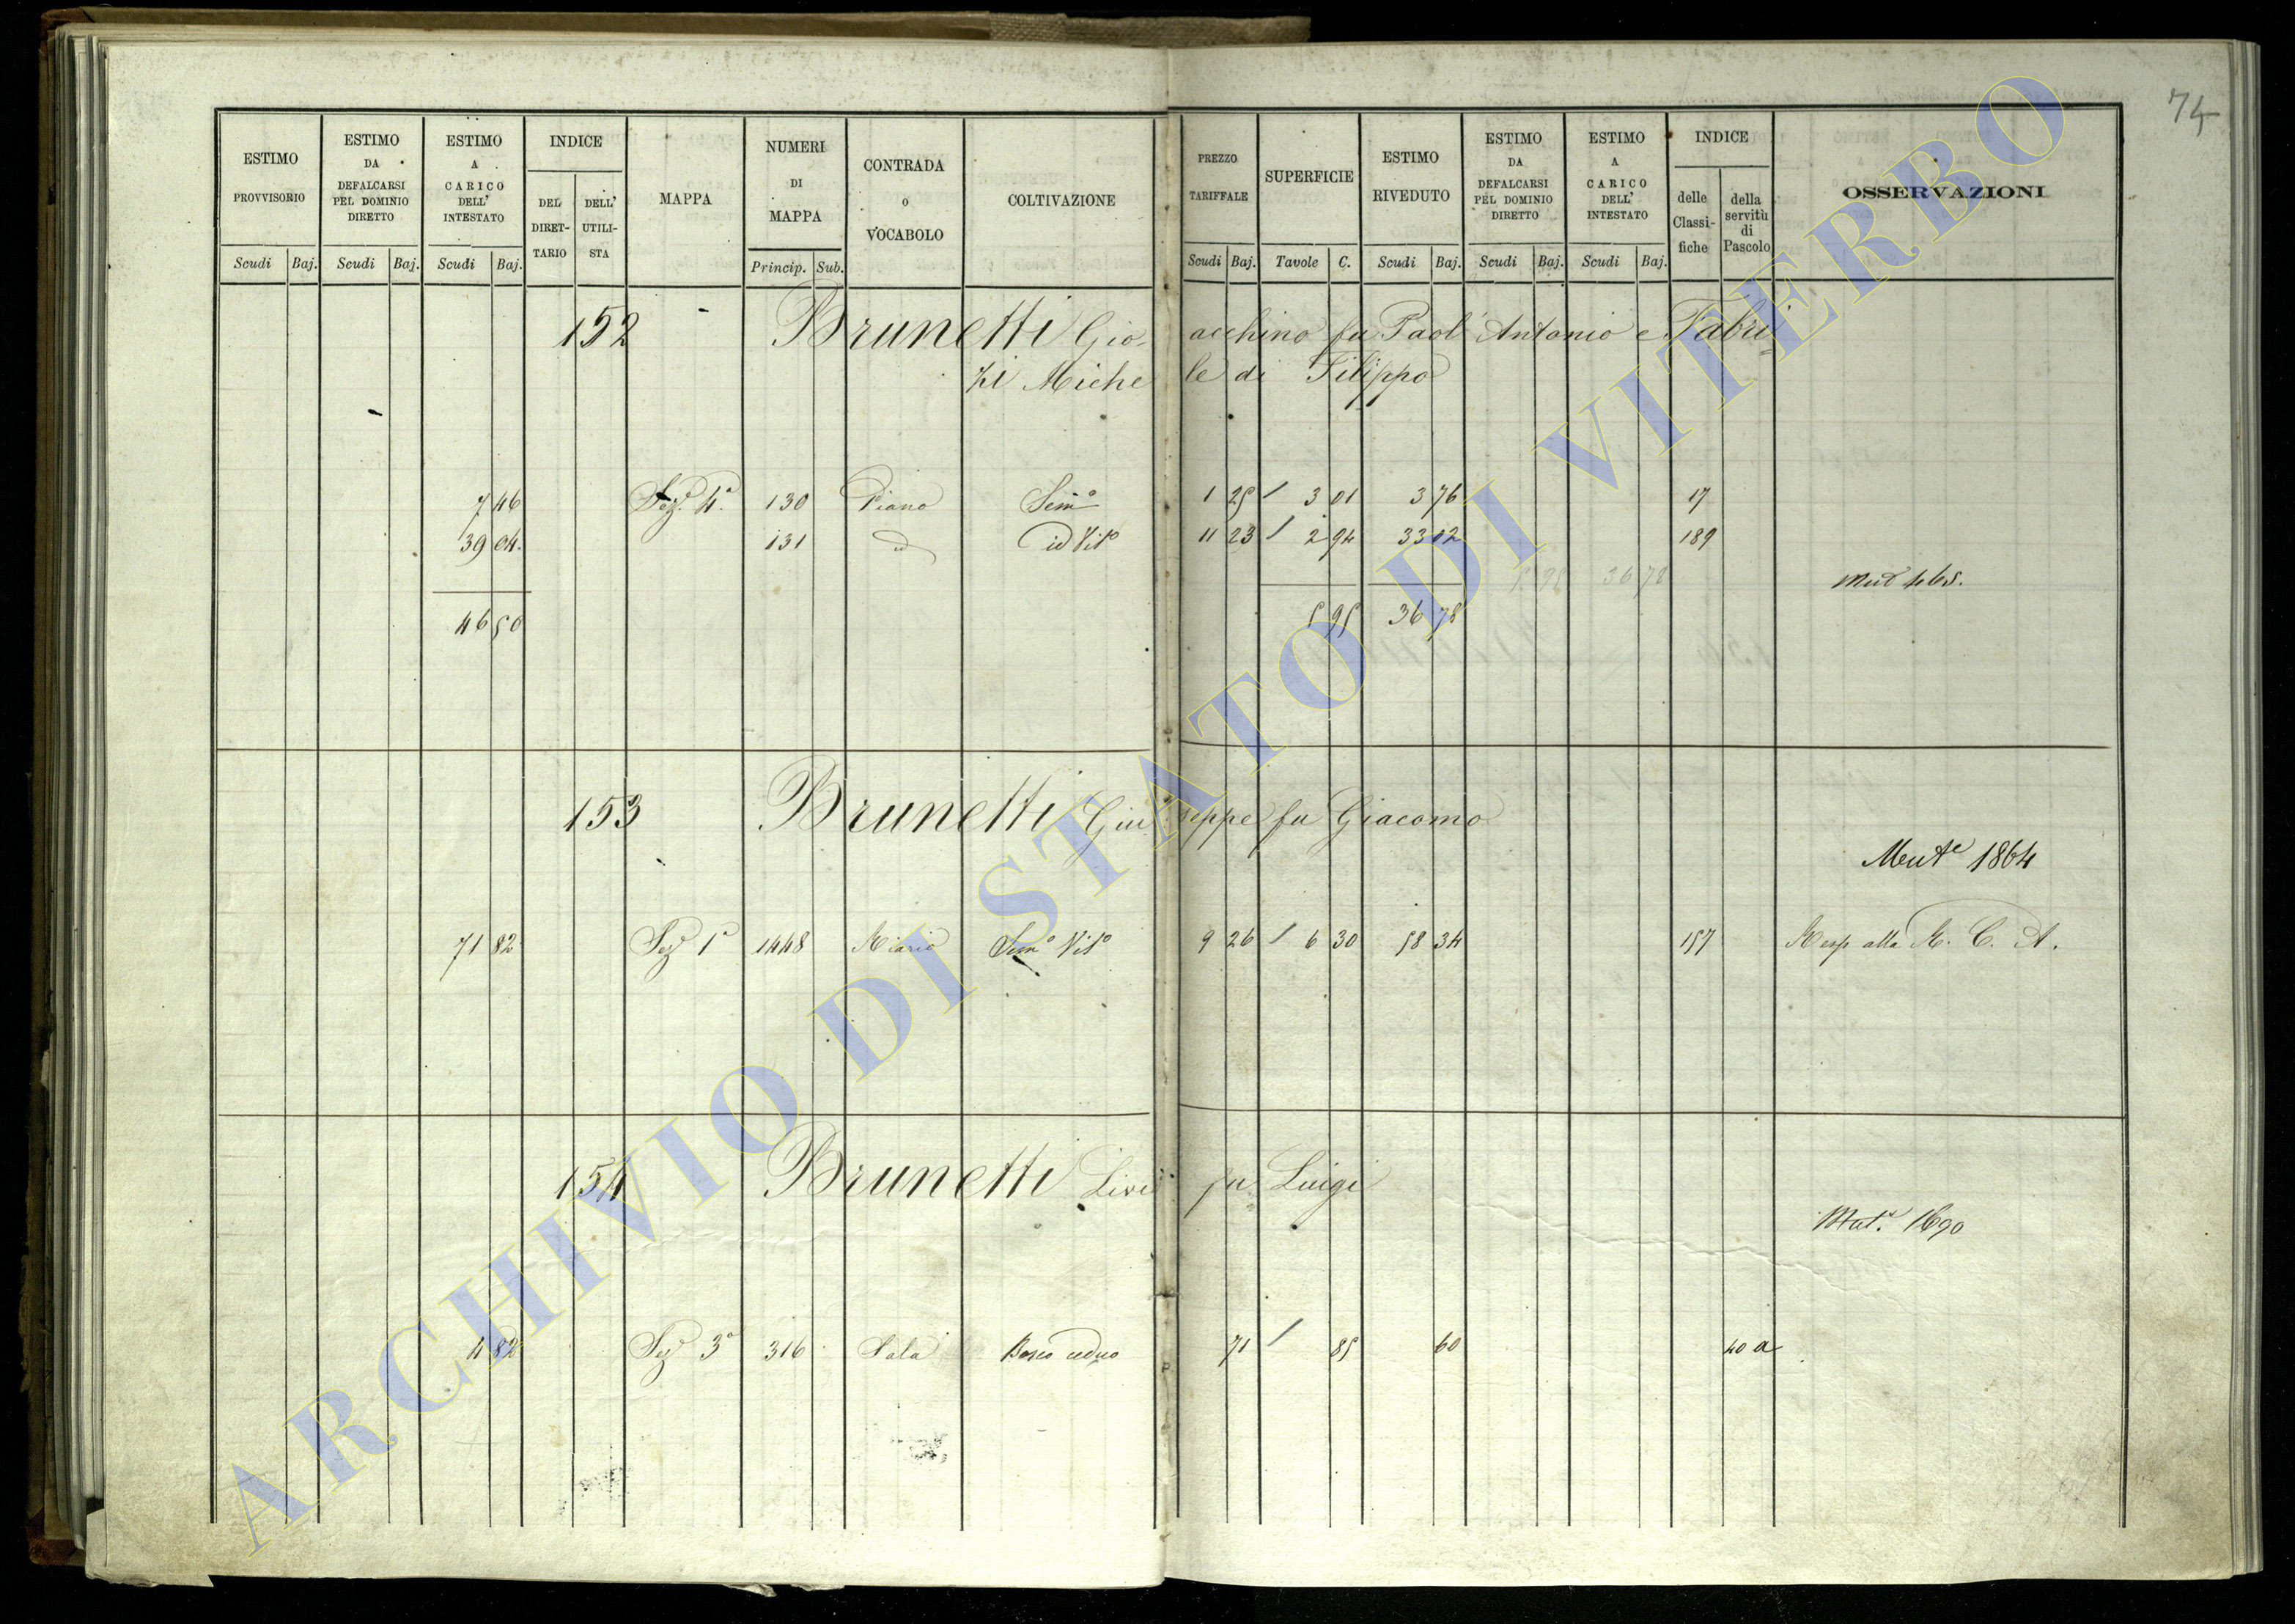 74
ESTIMO PROVVISORIO
ESTIMO DA DEFALCARSI PEL DOMINIO DIRETTO
ESTIMO A CARICO DELL' INTESTATO
INDICE
DEL DIRET-TARIO
DELL' UTILI-STA
MAPPA
NUMERI DI MAPPA
CONTRADA o VOCABOLO
COLTIVAZIONE
PREZZO TARIFFALE
SUPERFICIE
ESTIMO RIVEDUTO
ESTIMO DA DEFALCARSI PEL DOMINIO DIRETTO
ESTIMO A CARICO DELL' INTESTATO
INDICE
delle Classi-fiche
della servitù di Pascolo
OSSERVAZIONI
Scudi Baj. Scudi Baj. Scudi Baj. Princip. Sub. Scudi Baj. Tavole C. Scudi Baj. Scudi Baj. Scudi Baj.
152 Brunetti Gio-acchino fu Paol' Antonio e Fabri-
zi Michele di Filippo
7 46 Sez. 4a 130 Piano Semo 1 25 / 3 01 3 76 17
39 04 131 id id Vito 11 23 / 2 94 33 02 189
5 95 36 78
46 50 5 95 36 78
153 Brunetti Giuseppe fu Giacomo
Mute 1864
71 82 Sez 1a 1448 Semo Vito 9 26 / 6 30 58 34 157 alla R. C. A.
154 Brunetti Livi fu Luigi
1690
4 82 Sez 3a 316 Sala Bosco ceduo 71 / 85 60 40 a
ARCHIVIO DI STATO DI VITERBO